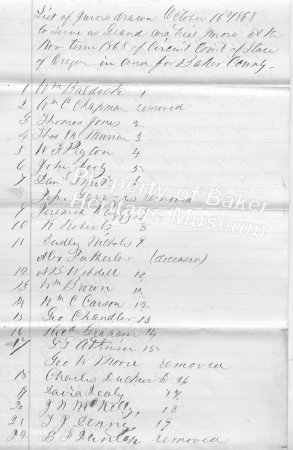 List of Jurors drawn October 16th 1868
to Serve as Grand and Trial Jurors at the
Nov Term 1868 of Circuit Court of State
of Oregon in and for Baker County
1 Wm Baldock 1
2 Wm C Chapman removed
3 Thomas Jones 2
4 Thos M Murran 3
5 W F Payton 4
6 John 5
7 Dan
8 removed
9 Jeremiah
10 Roberts 8
11 Dudley Nichols 9
Alex Fetherlor (deceased)
12 Weddell 10
13 Wm Brown 11
14 Wm C Carson 12
15 Geo Chandler 13
16 Graham 14
17 Atkinson 15
Geo W Moore removed
18 Charles Duckworth 16
19 David Dealy 17
20 J W McKelly 18
21 Denny 19
22 B F Dunlap removed
Property of Baker
Heritage Museum